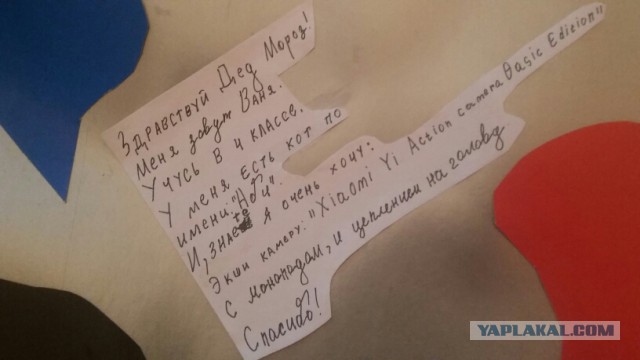 Здравствуй Дед Мороз!
Меня зовут Ваня.
Учусь в 4 классе.
У меня есть кот по
имени: "Аби".
И, знаете я очень хочу:
Экшн камеру: "Xiaomi Yi Action camera Basic Edicion"
С монопадам, и цеплением на голову.
Спасибо!
YAPLAKAL.COM